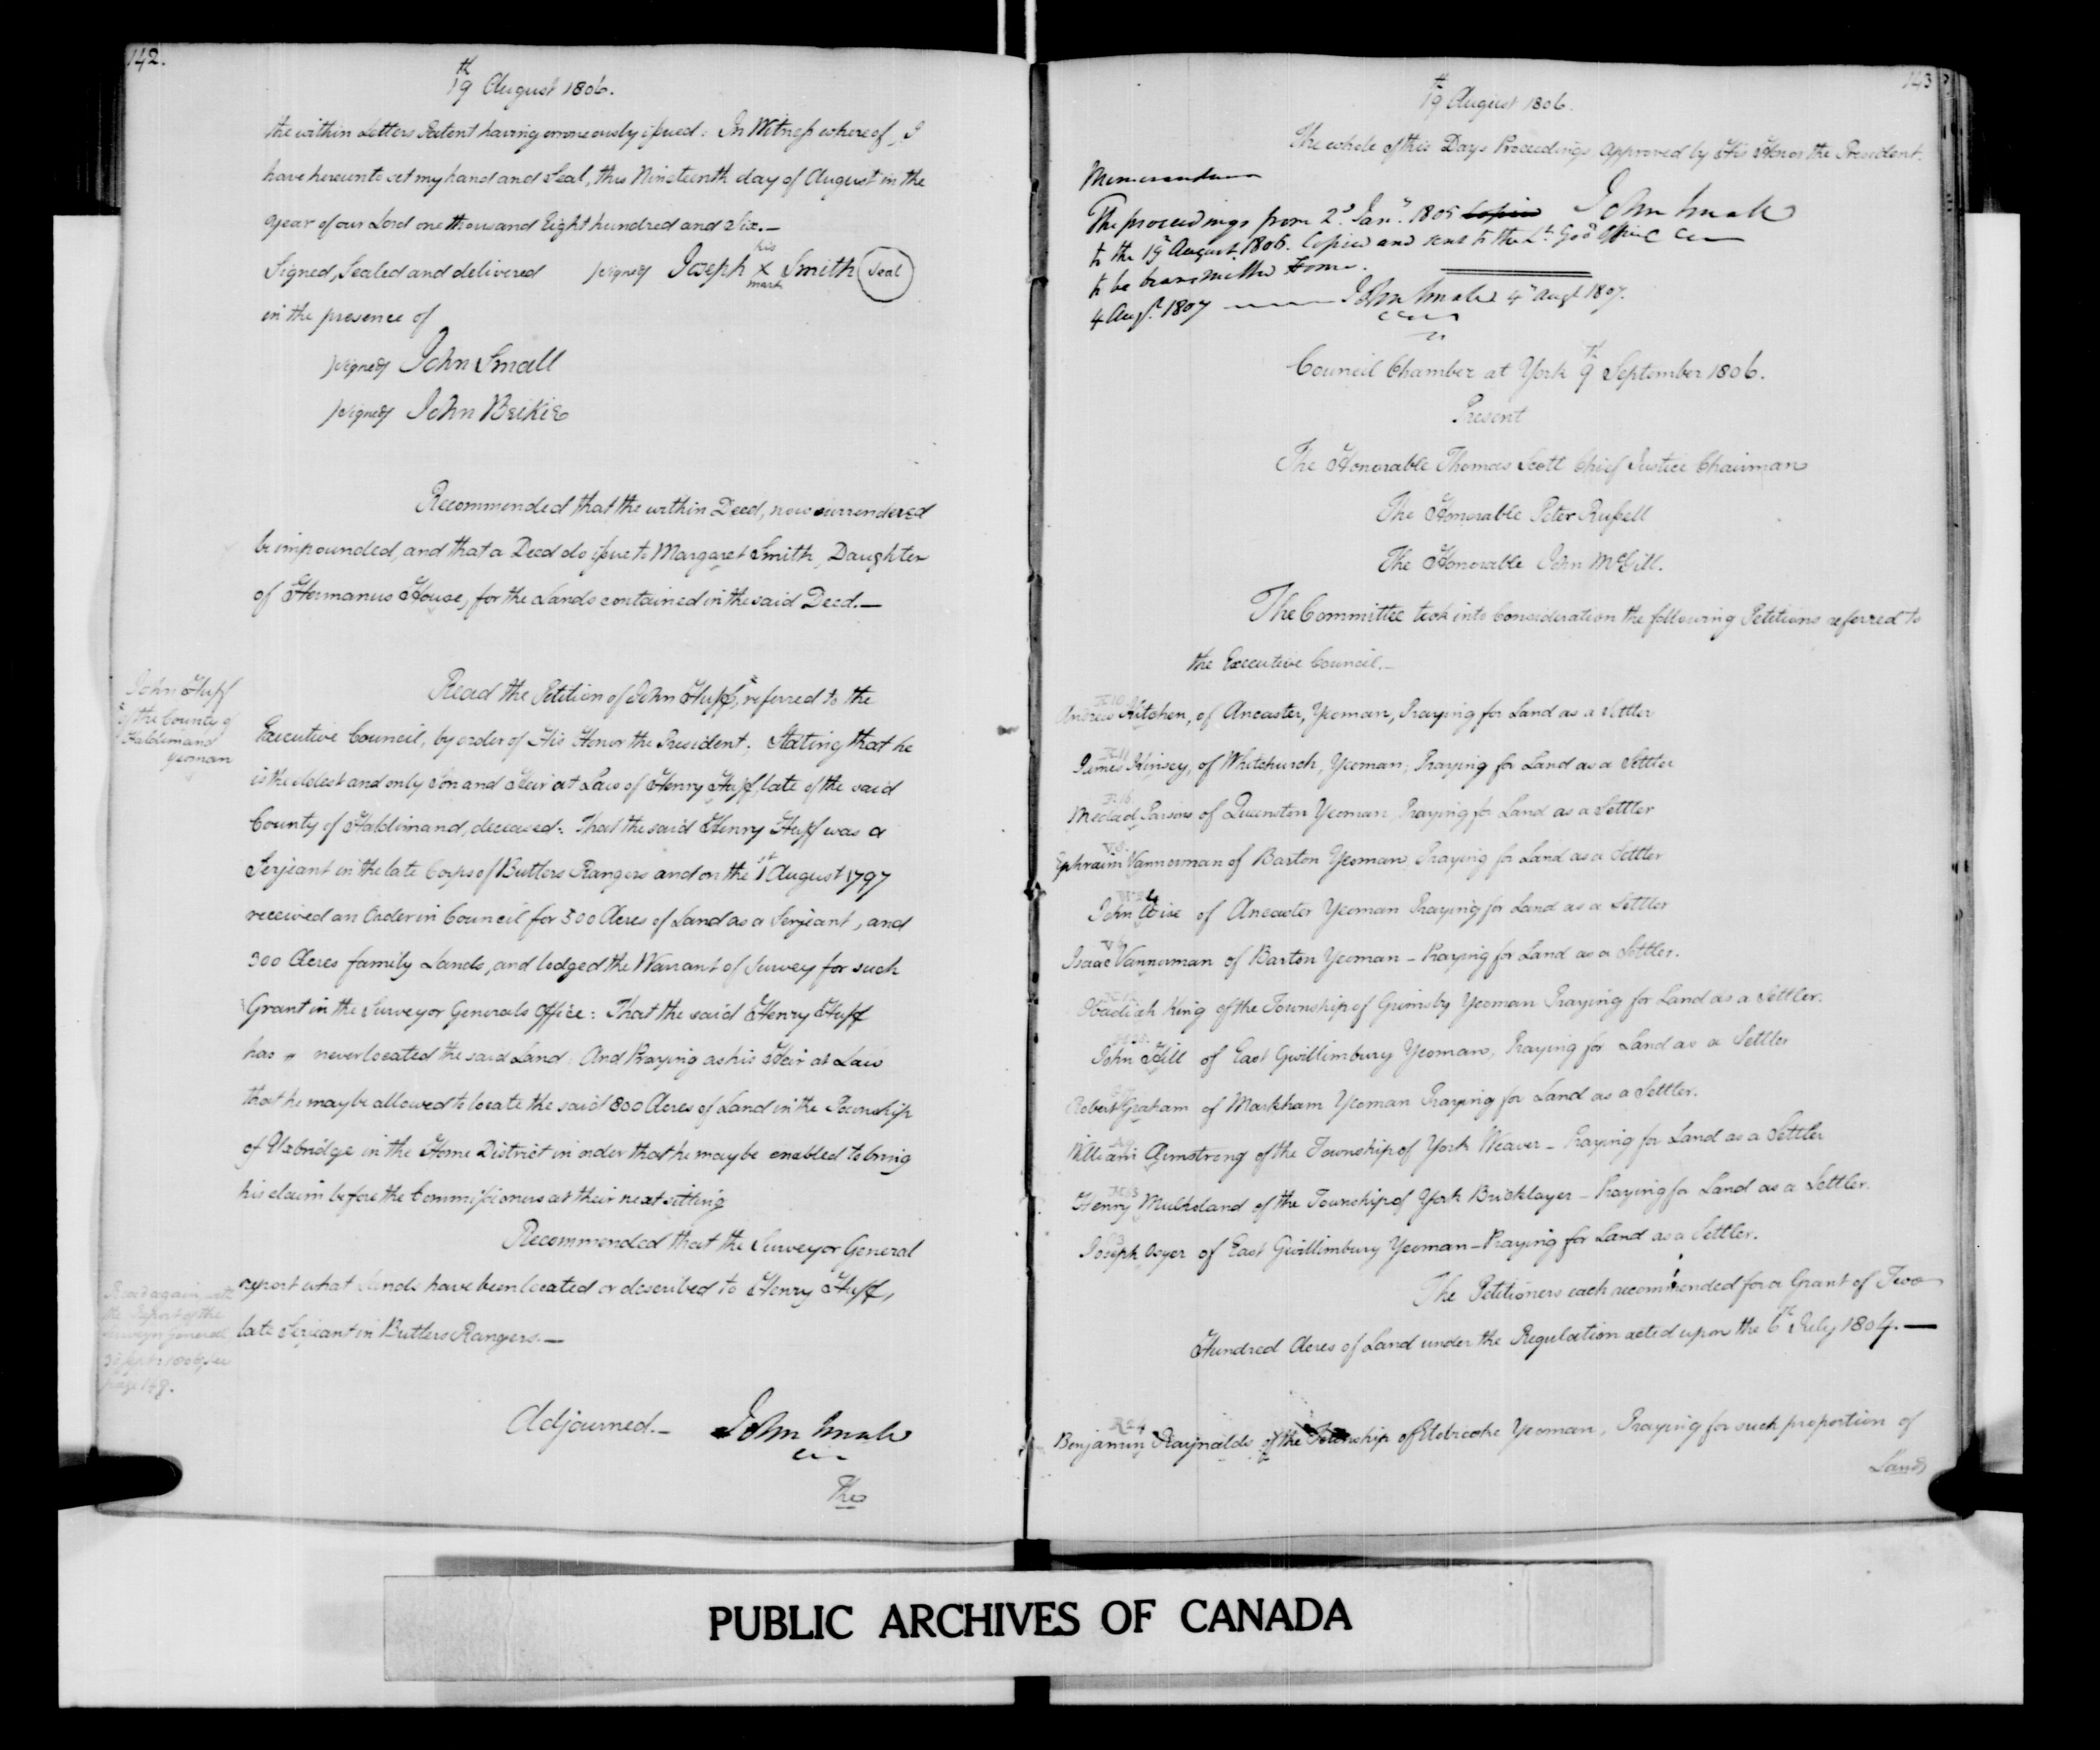 142.
19th August 1806.
the within Letters Patent having erroneously issued: In Witness whereof, I
have hereunto set my hand and Seal, this Nineteenth day of August in the
Year of our Lord one thousand Eight hundred and Six.—
Signed, Sealed and delivered signed Joseph his X mark Smith (Seal)
in the presence of
signed John Small
signed John Beikie
Recommended that the within Deed, now surrendered
be impounded, and that a Deed do issue to Margaret Smith, Daughter
of Hermanus House, for the Lands contained in the said Deed.—
John Huff
of the County of
Haldimand
Yeoman
Read the Petition of John Huff,* referred to the
Executive Council, by order of His Honor the President; Stating that he
is the eldest and only Son and Heir at Law of Henry Huff, late of the said
County of Haldimand, deceased: That the said Henry Huff was a
Serjeant in the late Corps of Butlers Rangers and on the 1st August 1797
received an Order in Council for 500 Acres of Land as a Serjeant, and
300 Acres family Lands, and lodged the Warrant of Survey for such
Grant in the Surveyor Generals Office: That the said Henry Huff
has never located the said Land: And Praying as his Heir at Law
that he may be allowed to locate the said 800 Acres of Land in the Township
of Uxbridge in the Home District in order that he may be enabled to bring
his claim before the Commissioners at their next sitting
Recommended that the Surveyor General
report what Lands have been located or described to Henry Huff,
late Serjeant in Butlers Rangers.—
Read again with
the Report of the
Surveyor General
Sept. 1806, see
page 149.
Adjourned.— John Small
The
143
19th August 1806.
The whole of this Days Proceedings, approved by His Honor the President.
Memorandum
John Small
The proceedings from 2d Jany. 1805 Copied
to the 19th August 1806. Copied and sent to the Lt. Govrs Office
to be transmitted Home.
4 Augt. 1807 —— John Small 4th Augt 1807.
Council Chamber at York 9th September 1806.
Present
The Honorable Thomas Scott Chief Justice Chairman
The Honorable Peter Russell
The Honorable John McGill.
The Committee took into Consideration the following Petitions referred to
the Executive Council.—
K10
Andrew Kitchen, of Ancaster, Yeoman, Praying for Land as a Settler
K11
James Kinsey, of Whitchurch, Yeoman; Praying for Land as a Settler
P.16
Medad Parsons of Queenston Yeoman, Praying for Land as a Settler
V.8.
Ephraim Vannorman of Barton Yeoman Praying for Land as a Settler
John Wise of Ancaster Yeoman Praying for Land as a Settler
V9
Isaac Vannorman of Barton Yeoman – Praying for Land as a Settler.
Obadiah King of the Township of Grimsby Yeoman Praying for Land as a Settler.
John Hill of East Gwillimbury Yeoman, Praying for Land as a Settler
Robert Graham of Markham Yeoman Praying for Land as a Settler.
William Armstrong of the Township of York Weaver – Praying for Land as a Settler
Henry Mulholand of the Township of York Bricklayer – Praying for Land as a Settler.
Joseph Osyer of East Gwillimbury Yeoman – Praying for Land as a Settler.
The Petitioners each recommended for a Grant of Two
Hundred Acres of Land under the Regulation acted upon the 6th July 1804.—
R24
Benjamin Raynalds of the Township of Etobicoke Yeoman, Praying for such proportion of
Lands
PUBLIC ARCHIVES OF CANADA